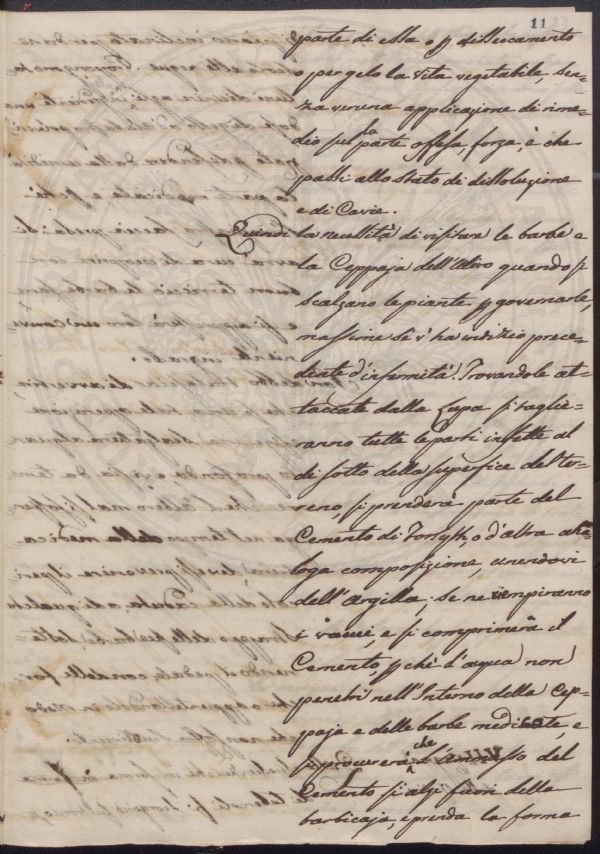 11
parte di essa o p dislocamento
o per gelo la vita vegetabile, sen=
za veruna applicazione di rime=
dio sulla parte offesa, forza, è che
passi allo stato di dissoluzione
e di Carie.
Quindi la necessità di visitare le barbe e
la Ceppaja dell'Ulivo quando si
scalzano le piante p governarle,
massime se v'ha indizio prece=
dente d'infermità. Trovandole at=
taccate dalla Lupa si taglie=
ranno tutte le parti infette al
di sotto della superfice del ter=
reno, si prenderà parte del
Cemento di Forsyth, o d'altra ana=
loga composizione, unendovi
dell'Argilla; se ne riempiranno
i vacui, e si comprimerà il
Cemento, p chè l'acqua non
penetri nell'Interno della Cep=
paja e delle barbe medicate, e
si procurerà che l' del
Cemento si alzi fuori della
barbicaja, e prenda la forma